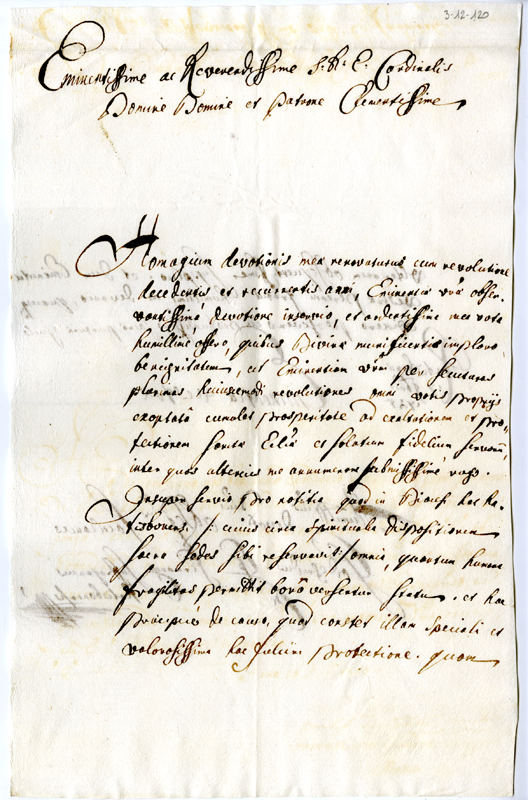 3-12-120
Eminentissime ac Reverendissime S: R: E: Cardinalis
Domine Domine et Patrone Clementissime
Homagium devotionis meæ renovaturus cum revolutione
decedentis et recurrentis anni, Eminentiæ vræ obser-
vantissimâ devotione inservio, et ardentissima mea vota
humillime offero, quibus Divinæ munificentiæ imploro
benignitatem, ut Eminentiam vrām per secuturas
plurimas huiusmodi revolutiones omni votis propriis
exoptatâ cumulet prosperitate ad exaltationem et pro-
tectionem sanctæ Eccliæ et solatium fidelium servorū,
inter quos ulterius me annumerari submississime rogo.
Insuper servio pro notitia quod in Diœcesi hac Ra-
tisbonensi /: cuius circa spiritualia dispositionem
sacra sedes sibi reservavit :/ omnia, quantum humana
fragilitas permittit bono versentur statu, et hac
principiis de causa, quod constet illam speciali et
valorosissima hac fulciri protectione. quam